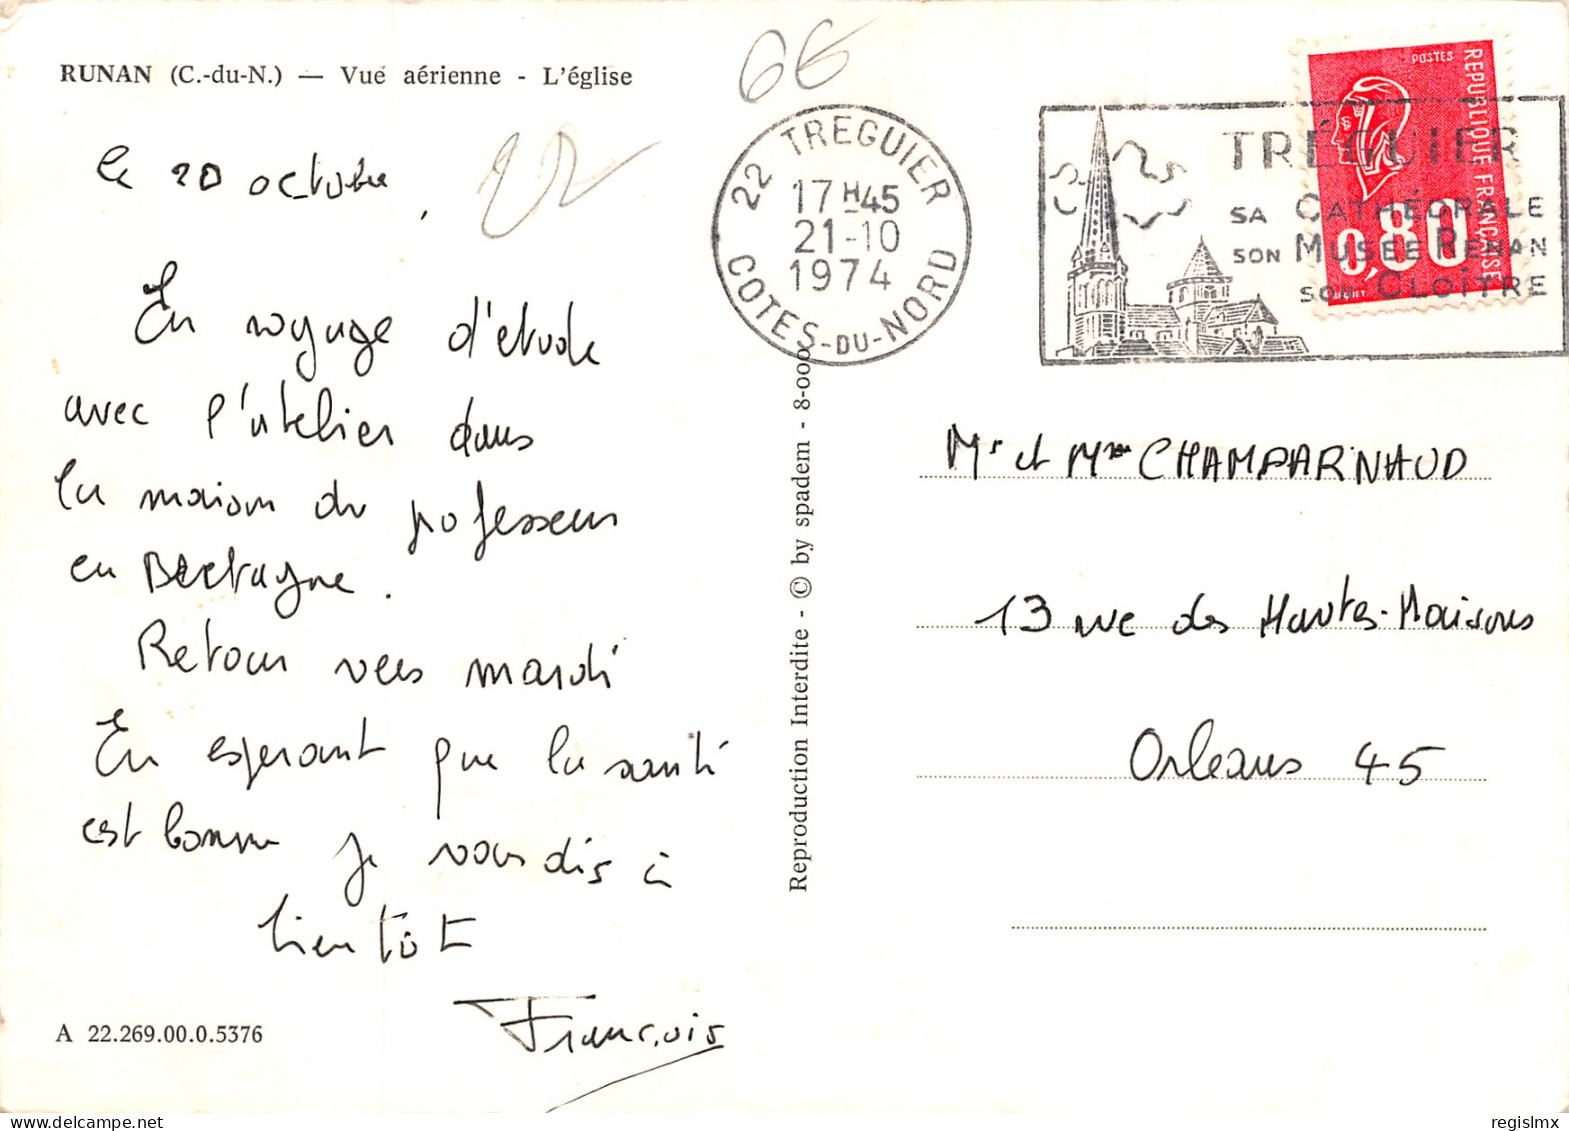 RUNAN (C.-du-N.) — Vue aérienne - L'église
66
22
le 20 octobre,
En voyage d'étude
avec l'atelier dans
la maison du professeur
en Bretagne.
Retour vers mardi
En esperant que la santé
est bonne je vous dis à
bientôt
François
A 22.269.00.0.5376
Reproduction Interdite - © by spadem - 8-000
22 TREGUIER
17H45
21-10
1974
COTES-DU-NORD
TRÉGUIER
SA CATHÉDRALE
SON MUSÉE RENAN
SON CLOÎTRE
POSTES
REPUBLIQUE FRANÇAISE
0,80
Mr et Mme CHAMPARNAUD
13 rue des Hautes-Maisons
Orléans 45
regislmx